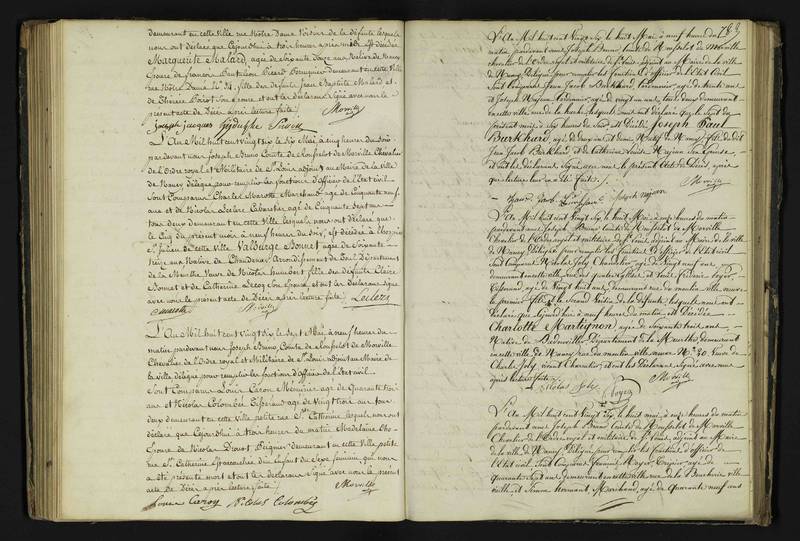 demeurant en cette Ville rue Notre Dame Voisins de la défunte lesquels
nous ont déclaré que Cejourd'hui à trois heures après midi est décédée
Marguerite Malard, agée de Soixante Douze ans Native de Nancy
Epouse de François
rue Notre Dame N° 34, fille des défunts Jean Baptiste Malard et
de Thérèse son Epouse, et ont les déclarans Signé avec nous le
présent acte de Décès après lecture faite. Morville
Joseph Jacques
L'An Mil huit cent vingt six le six Mai, à neuf heures du Soir
pardevant nous Joseph Bruno Comte de Rousselot de Morville Chevalier
de l'Ordre royal et Militaire de St Louis adjoint au Maire de la Ville
de Nancy Délégué pour remplir les fonctions d'officier de l'Etat civil
Sont Comparus Charles Marotte Marchand agé de Cinquante neuf
ans et de Nicolas Leclere Cabaretier agé de Cinquante Sept ans
tous deux demeurant en cette Ville lesquels nous ont déclaré que
le Cinq du présent mois à neuf heures du Soir, est décédée à l'hospice
St Julien de cette Ville Valburge Bonnet agée de Soixante
treize ans Native de Chaudenay Arrondissement de Toul Département
de la Meurthe Veuve de Nicolas humbert fille des défunts Claire
Bonnet et de Catherine Lecoq Son Epouse, et ont les déclarans Signé
avec nous le présent acte de Décès après lecture faite. Leclere
Marotte Morville
L'An Mil huit cent Vingt Six le Sept Mai à neuf heures du
matin pardevant nous Joseph Bruno, Comte de Rousselot de Morville
Chevalier de l'Ordre royal et Militaire de St Louis adjoint au Maire de
la Ville délégué pour remplir les fonctions d'officier de l'Etat civil
Sont Comparus Louis Caron Menuisier agé de Quarante trois
ans et Nicolas Colombée Tisserand agé de Vingt trois ans tous
deux demeurant en cette Ville petite rue Ste Catherine lesquels nous ont
déclaré que Cejourd'hui à trois heures du matin Madelaine
Epouse de Nicolas Drouot Peignier demeurant en cette Ville petite
rue Ste Catherine est accouchée d'un Enfant du Sexe féminin qui nous
a été présenté mort et ont les déclarans Signé avec nous le présent
acte de Décès après lecture faite. Morville
Louis Caron Nicolas Colombée
L'An Mil huit cent Vingt Six le huit Mai à neuf heures du
matin pardevant nous Joseph Bruno, Comte de Rousselot de Morville
chevalier de l'Ordre royal et militaire de St Louis, adjoint au Maire de la ville
de Nancy, Délégué pour remplir les fonctions d'officier de l'Etat Civil
Sont Comparus Jean Jacob Burkhard Cordonnier agé de trente ans
et Joseph Mujean Cordonnier agé de vingt un ans tous deux demeurant
en cette ville, rue de la hache, lesquels nous ont déclaré que le Sept du
présent mois à six heures du Soir est décédé Joseph Paul
Burkhard agé de
Jean Jacob Burkhard et de Catherine Louise Mujean Son Epouse,
et ont les déclarans Signé avec nous le présent Acte de Décès, après
que lecture leur en a été faite. Morville
Jean Jacob Burkhard Joseph Mujean
L'An Mil huit cent Vingt Six le huit Mai à onze heures du matin
pardevant nous Joseph Bruno Comte de Rousselot de Morville
Chevalier de l'Ordre royal et militaire de St Louis, adjoint au Maire de la ville
de Nancy, Délégué pour remplir les fonctions d'officier de l'Etat civil
Sont Comparus Nicolas Joly Chandelier, agé de Vingt neuf ans
demeurant en cette ville rue des quatre Eglises et Louis Frédéric Boyer
Tisserand, agé de vingt huit ans, demeurant rue du moulin ville neuve
le premier fils et le Second Voisin de la défunte, lesquels nous ont
déclaré que Cejourd'hui à neuf heures du matin, est Décédée
Charlotte Martignon agée de Soixante trois ans
Native de Badonviller Département de la Meurthe, demeurant
en cette ville de Nancy rue du moulin ville neuve N° 40. Veuve de
Charles Joly vivant Chandelier, et ont les Déclarans Signé avec nous
après lecture faite. Nicolas Joly Morville
Boyer
L'An Mil huit cent Vingt Six le huit mai, à onze heures du matin
pardevant nous Joseph Bruno Comte de Rousselot de Morville
Chevalier de l'Ordre royal et militaire de St Louis, adjoint au Maire
de la ville de Nancy, Délégué pour remplir les fonctions d'officier de
l'Etat civil, Sont Comparus Mayer agé de
quarante Sept ans, demeurant en cette ville rue de la Boucherie ville
vieille et Marchand, agé de Quarante neuf ans